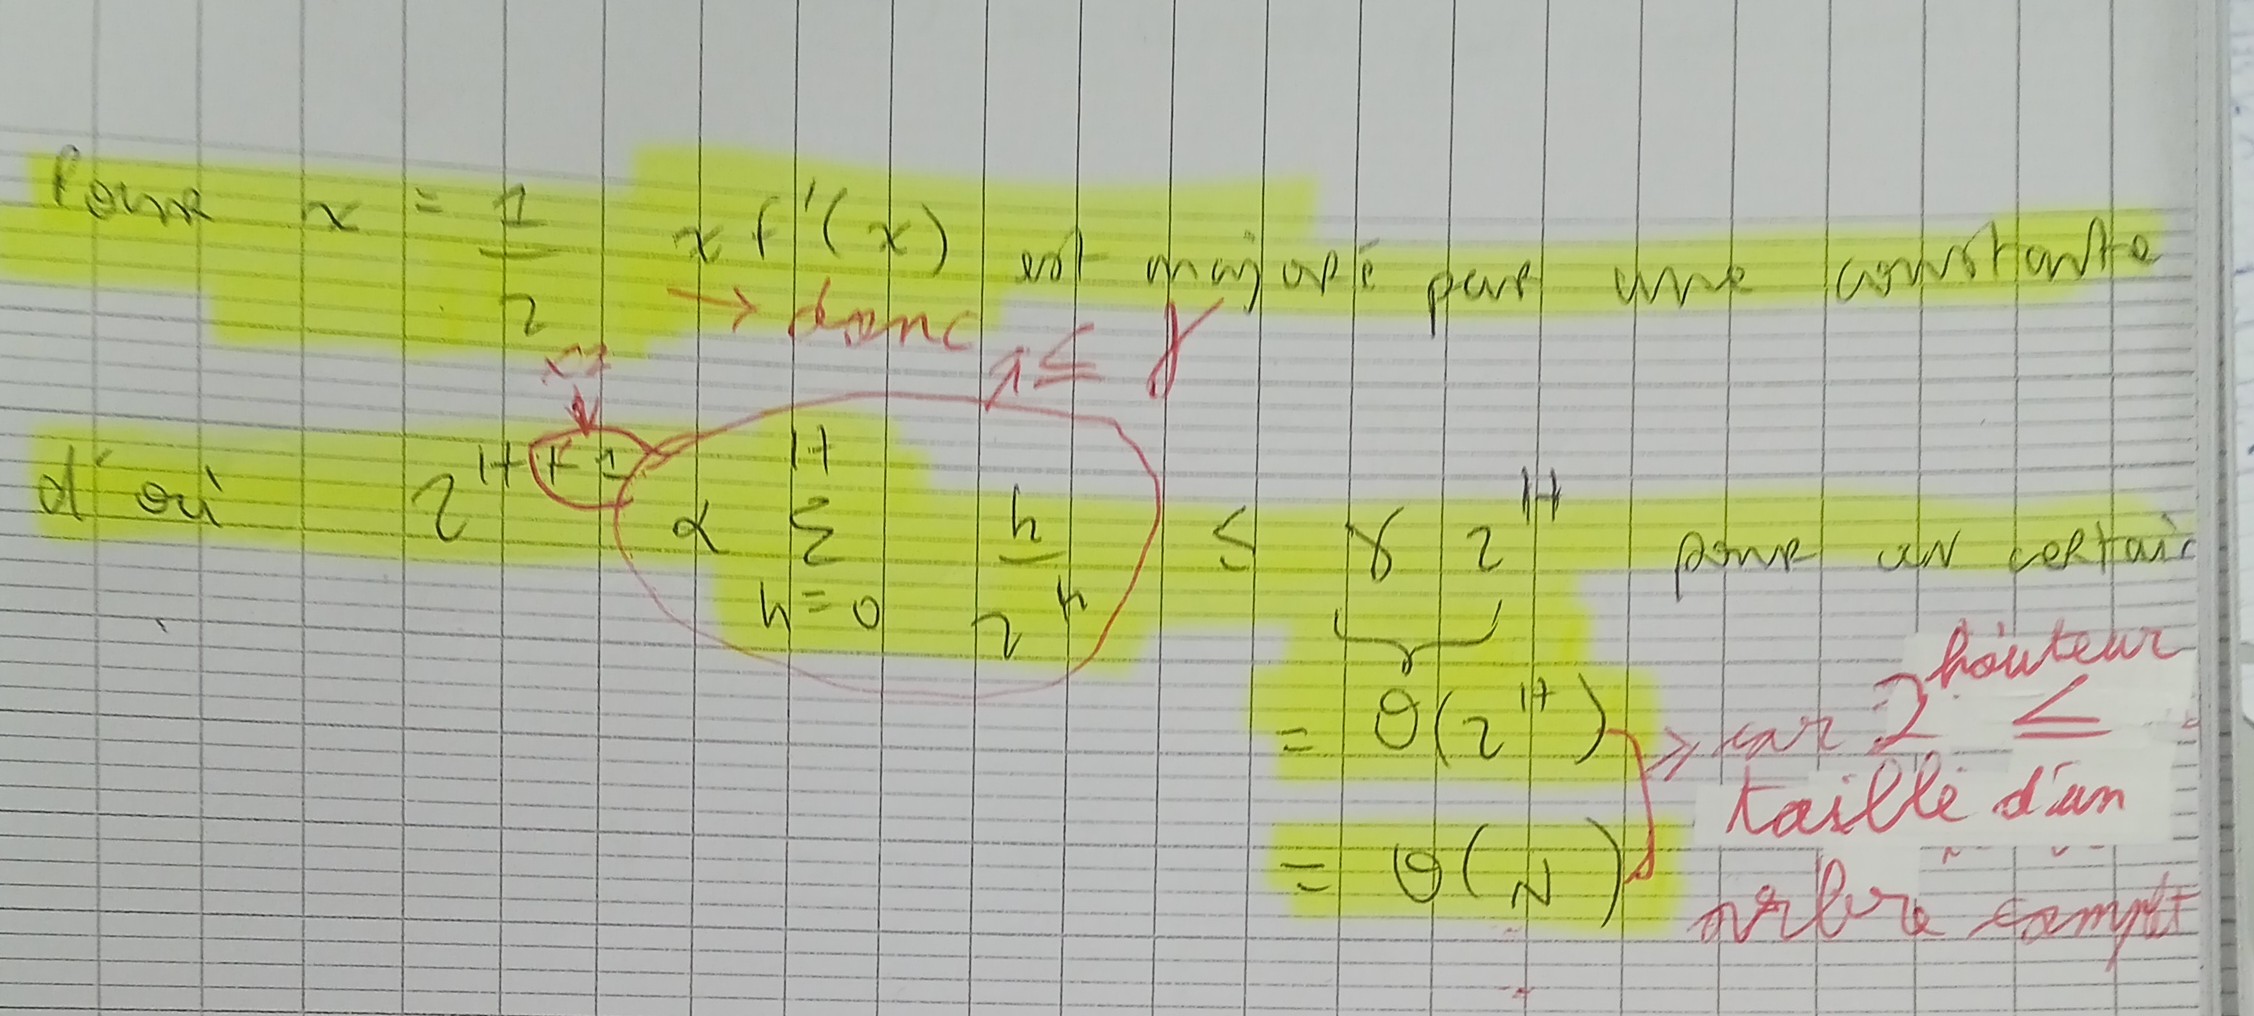 Pour x = 1/2 x f'(x) est majoré par une constante
→ donc
≤ γ
d'où 2^(H+1) α Σ_(h=0)^H h/2^h ≤ γ 2^H pour un certain
= O(2^H) → car 2^hauteur ≤
taille d'un
= O(N)
arbre complet